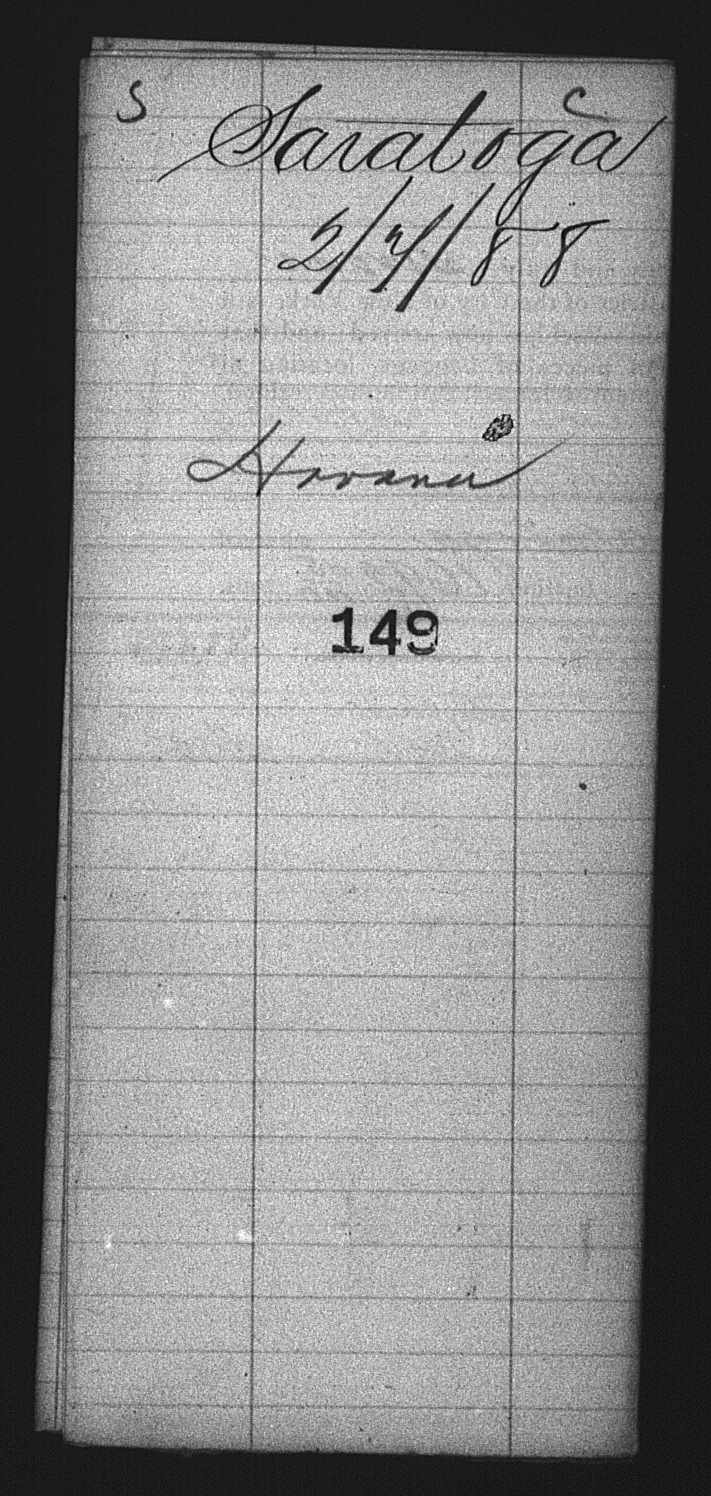 S C
Saratoga
2/7/88
Havana
149